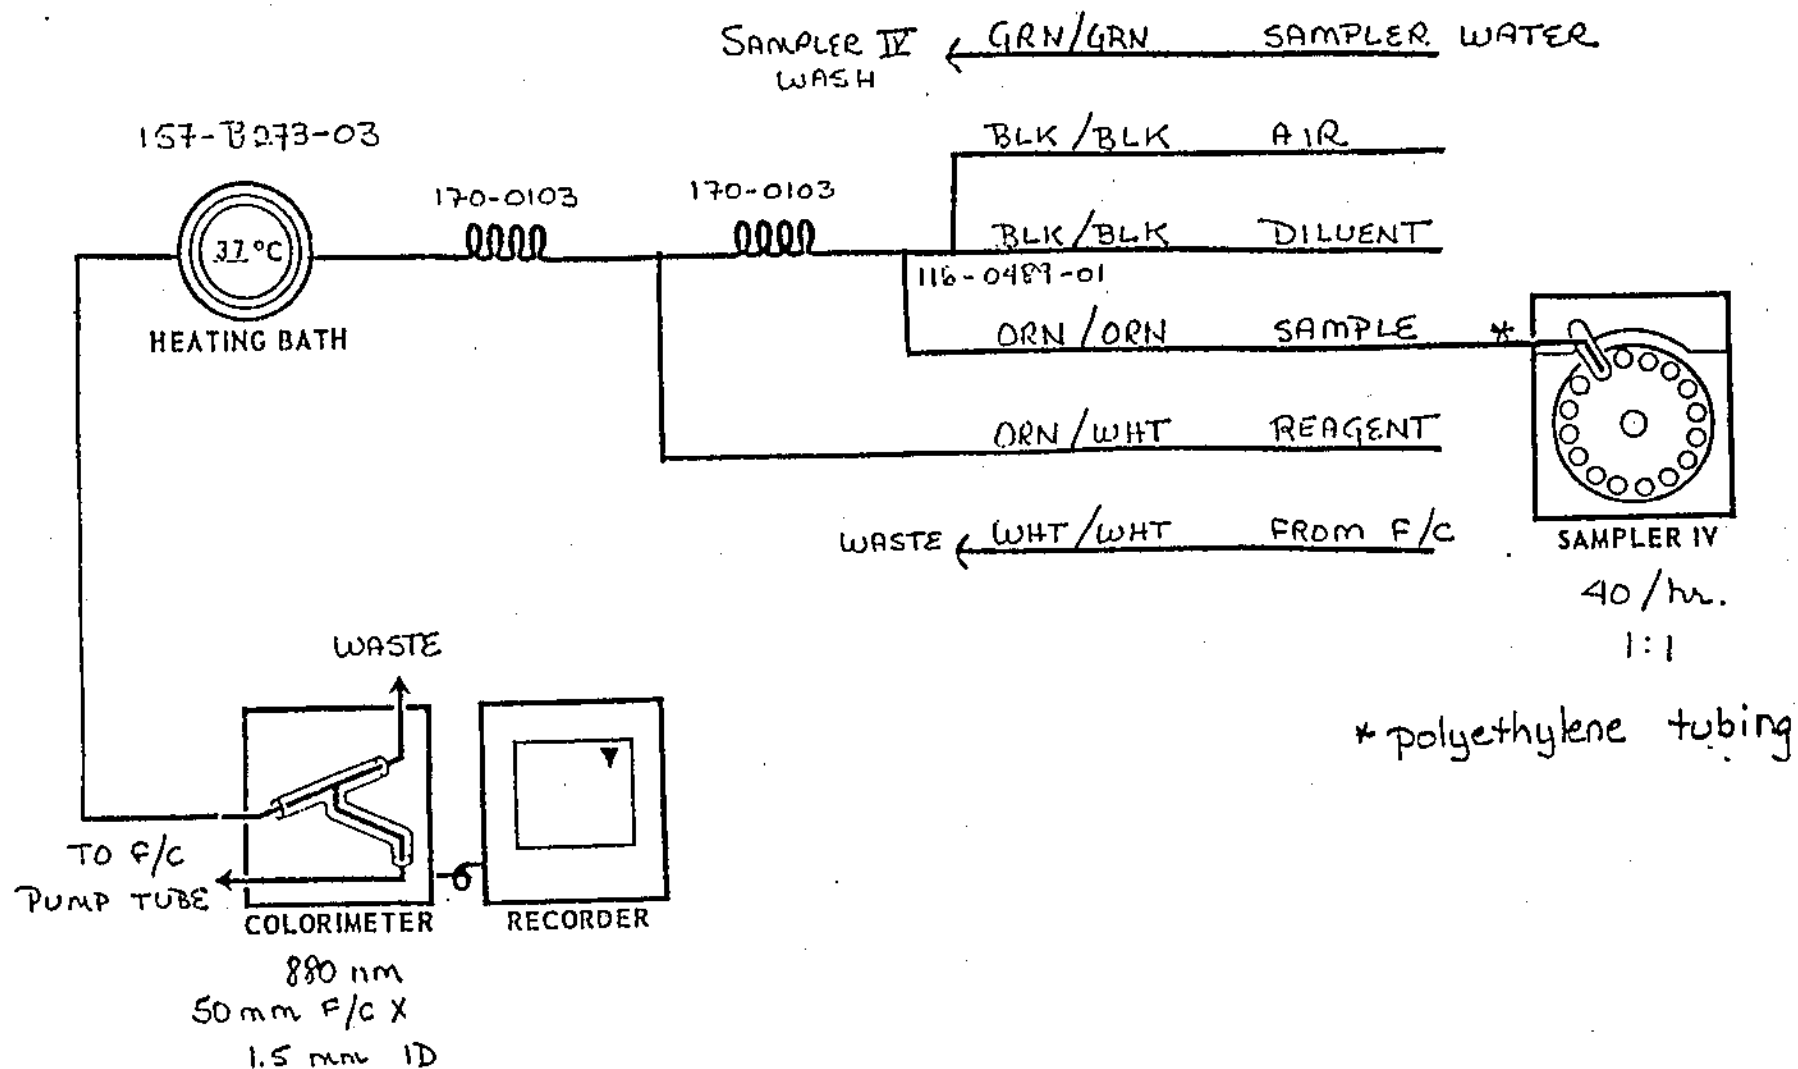 SAMPLER IV
WASH
GRN/GRN SAMPLER WATER
BLK/BLK AIR
157-B273-03
170-0103
170-0103
37 °C
HEATING BATH
BLK/BLK DILUENT
116-0489-01
ORN/ORN SAMPLE *
ORN/WHT REAGENT
WASTE WHT/WHT FROM F/C
SAMPLER IV
40/hr.
1:1
* polyethylene tubing
WASTE
TO F/C
PUMP TUBE
COLORIMETER
RECORDER
880 nm
50 mm F/C X
1.5 mm ID